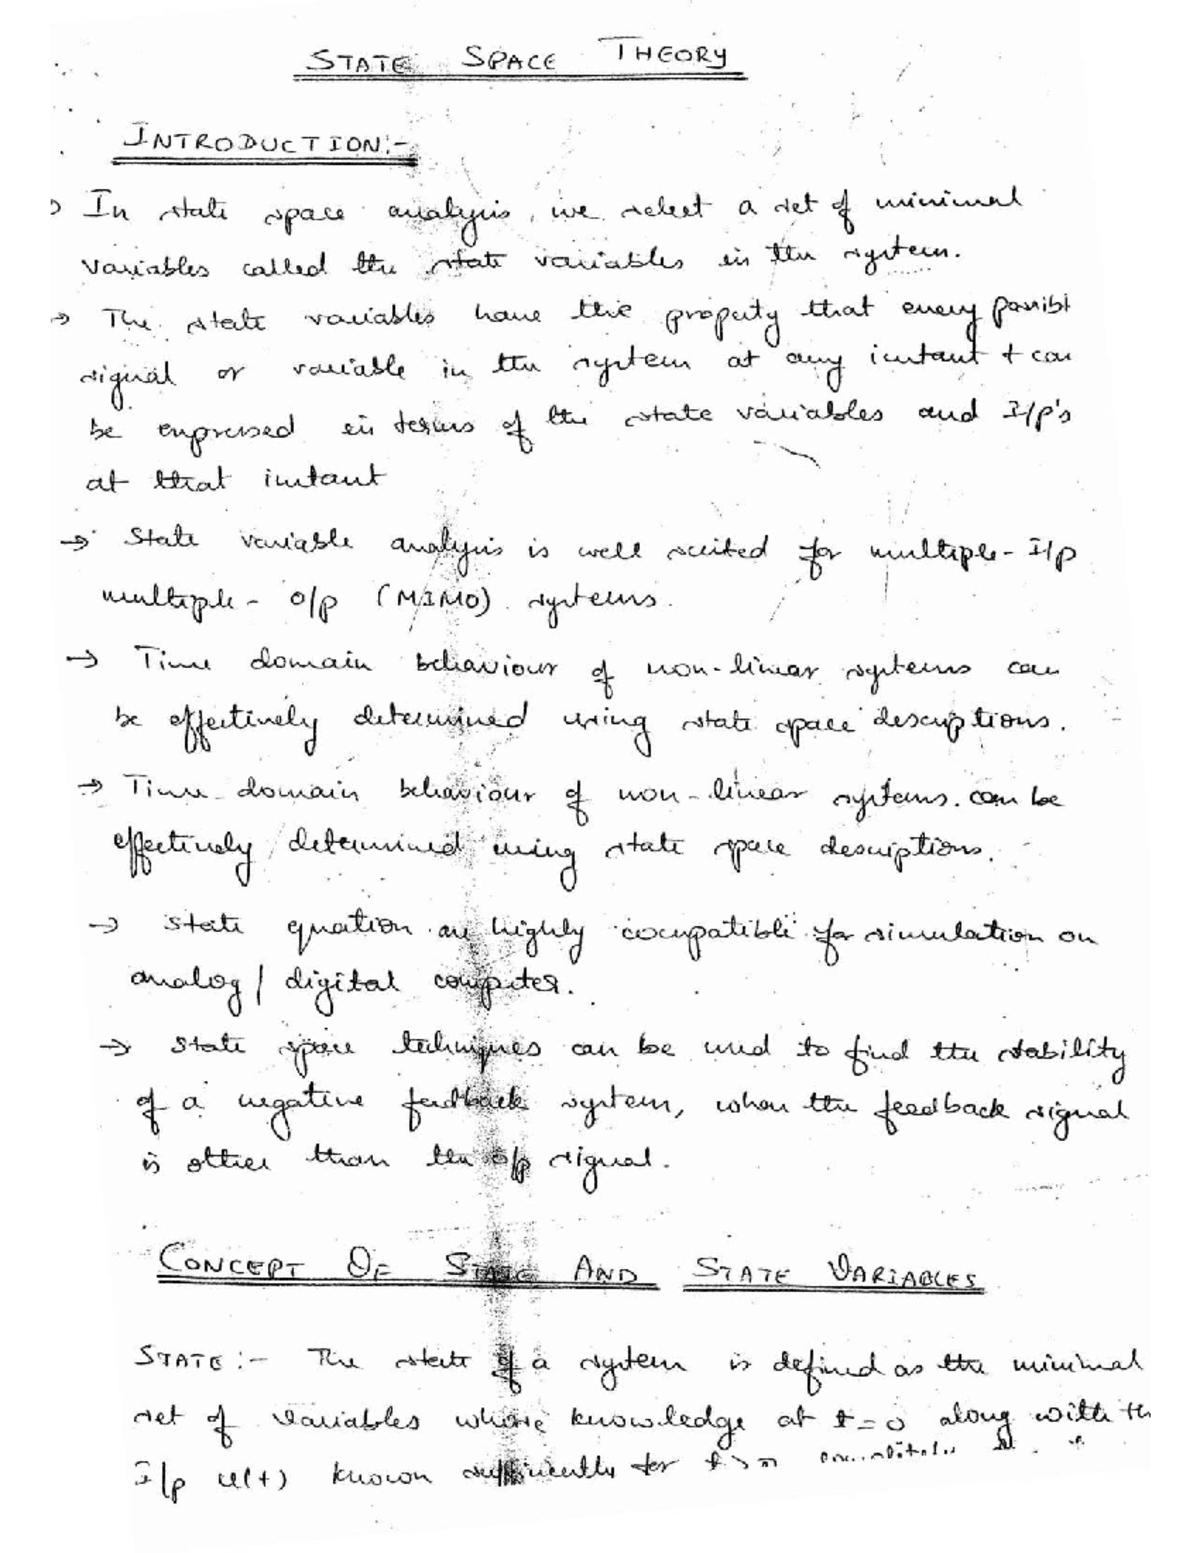 STATE SPACE THEORY
INTRODUCTION:-
In state space analysis, we select a set of minimal
variables called the state variables in the system.
→ The state variables have the property that every possibl
signal or variable in the system at any instant t can
be expressed in terms of the state variables and I/p's
at that instant
→ State variable analysis is well suited for multiple- I/p
multiple- o/p (MIMO) systems.
→ Time domain behaviour of non-linear systems can
be effectively determined using state space descriptions.
→ Time domain behaviour of non-linear systems can be
effectively determined using state space descriptions.
→ State equation are highly compatible for simulation on
analog/ digital computer.
→ State space techniques can be used to find the stability
of a negative feedback system, when the feedback signal
is other than the o/p signal.
CONCEPT OF STATE AND STATE VARIABLES
STATE:- The state of a system is defined as the minimal
set of variables whose knowledge at t=0 along with th
I/p u(t) known sufficiently for